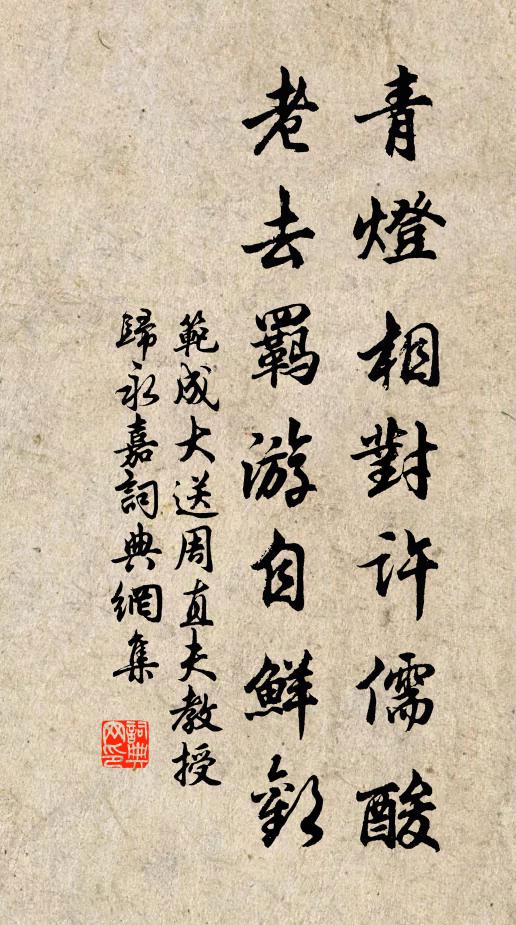 青燈相對許儒酸
老去羁游自鮮歡
範成大送周直夫教授
歸永嘉詞典網集
詞典
网印